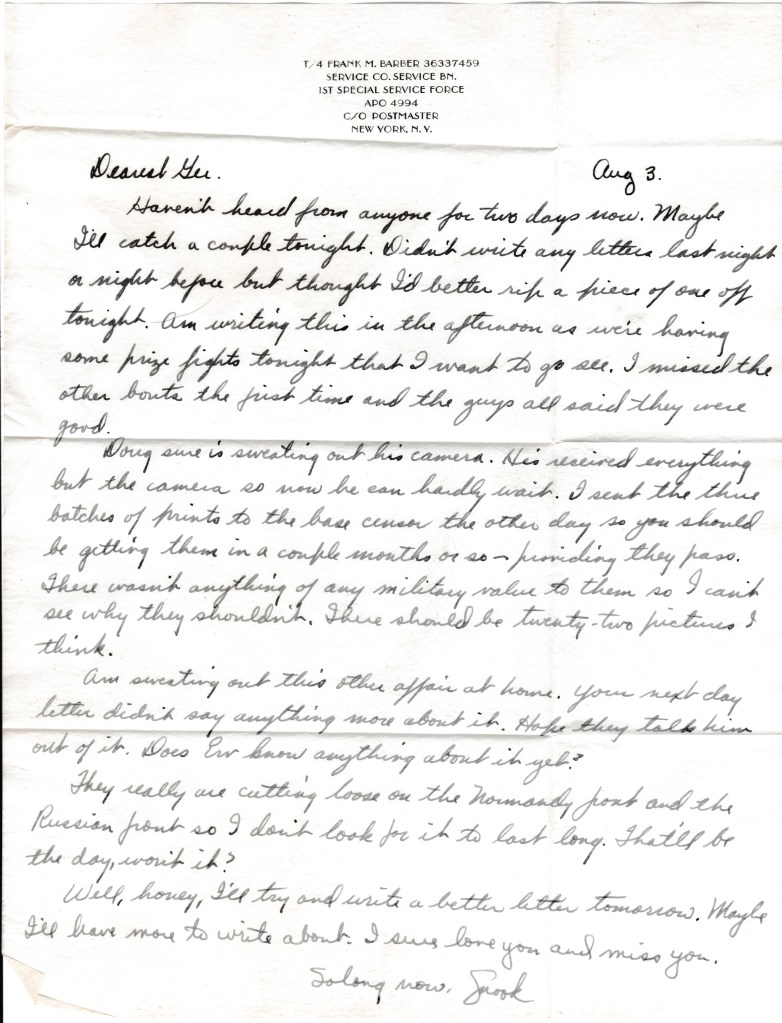 T/4 FRANK M. BARBER 36337459
SERVICE CO. SERVICE BN.
1ST SPECIAL SERVICE FORCE
APO 4994
C/O POSTMASTER
NEW YORK, N. Y.
Dearest Ger. Aug 3.
Haven't heard from anyone for two days now. Maybe
I'll catch a couple tonight. Didn't write any letters last night
or night before but thought I'd better rip a piece of one off
tonight. Am writing this in the afternoon as we're having
some prize fights tonight that I want to go see. I missed the
other bouts the first time and the guys all said they were
good.
Doug sure is sweating out his camera. His received everything
but the camera so now he can hardly wait. I sent the three
batches of prints to the base censor the other day so you should
be getting them in a couple months or so - providing they pass.
There wasn't anything of any military value to them so I can't
see why they shouldn't. There should be twenty-two pictures I
think.
Am sweating out this other affair at home. Your next day
letter didn't say anything more about it. Hope they talk him
out of it. Does Erv know anything about it yet?
They really are cutting loose on the Normandy front and the
Russian front so I don't look for it to last long. That'll be
the day, won't it?
Well, honey, I'll try and write a better letter tomorrow. Maybe
I'll have more to write about. I sure love you and miss you.
Solong now. Snook